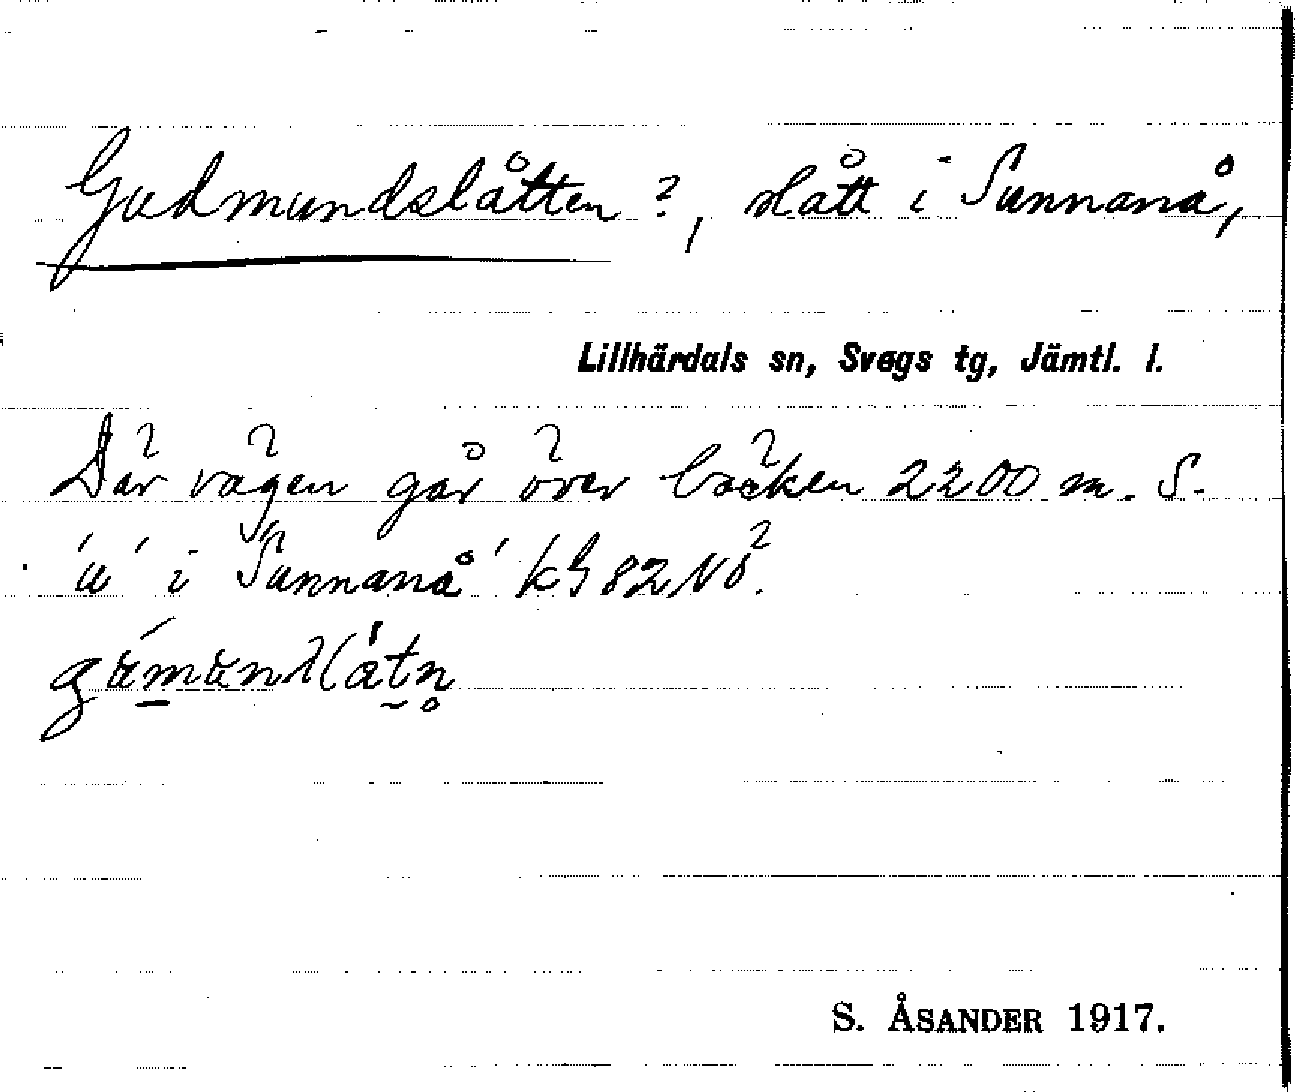 Gudmundslåtten ?, slått i Sunnanå,
Lillhärdals sn, Svegs tg, Jämtl. l.
Där vägen går över bäcken 2200 m. S.
'u' i 'Sunnanå' kG 82 NÖ.
S. ÅSANDER 1917.